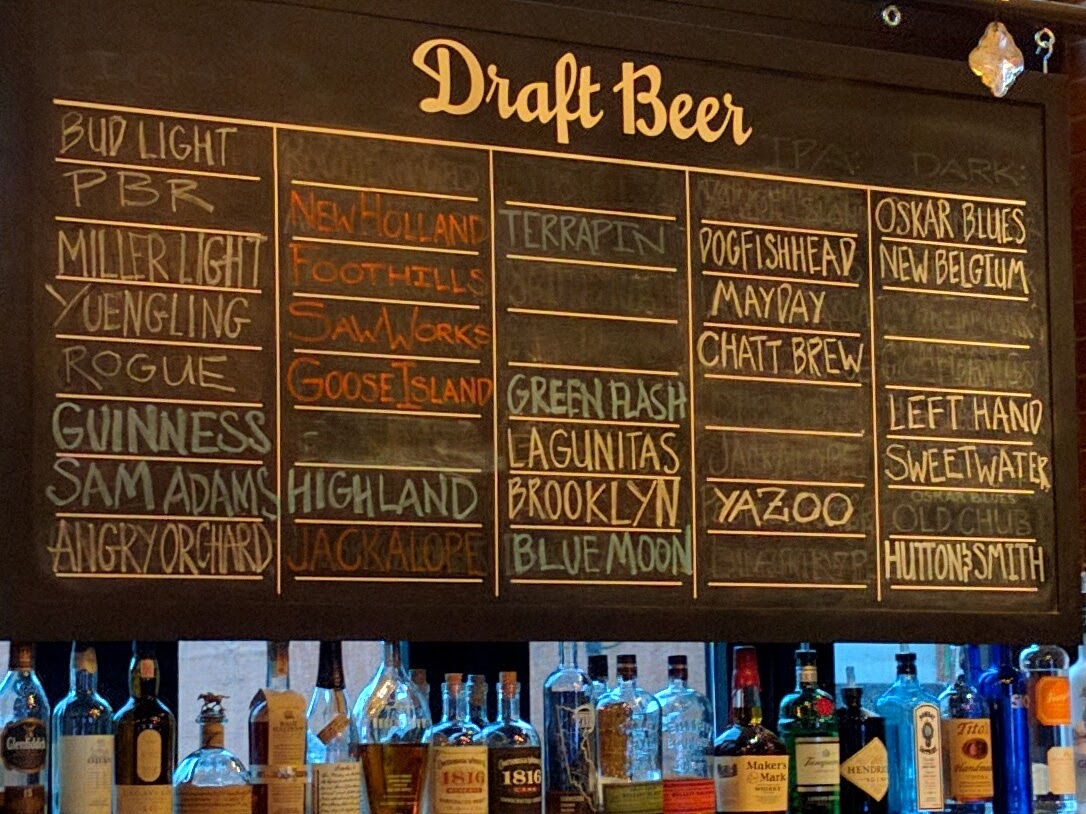 Draft Beer
IPA:
DARK:
BUD LIGHT
PBR
MILLER LIGHT
YUENGLING
ROGUE
GUINNESS
SAM ADAMS
ANGRY ORCHARD
NEW HOLLAND
FOOTHILLS
SAW WORKS
GOOSE ISLAND
HIGHLAND
JACKALOPE
TERRAPIN
GREEN FLASH
LAGUNITAS
BROOKLYN
BLUE MOON
DOGFISHHEAD
MAYDAY
CHATT BREW
JACKALOPE
YAZOO
OSKAR BLUES
NEW BELGIUM
LEFT HAND
SWEETWATER
OSKAR BLUES
OLD CHUB
HUTTON & SMITH
Glenfiddich
1816
1816
Maker's
Mark
WHISKY
Tanqueray
HENDRICK'S
Tito's
Handmade